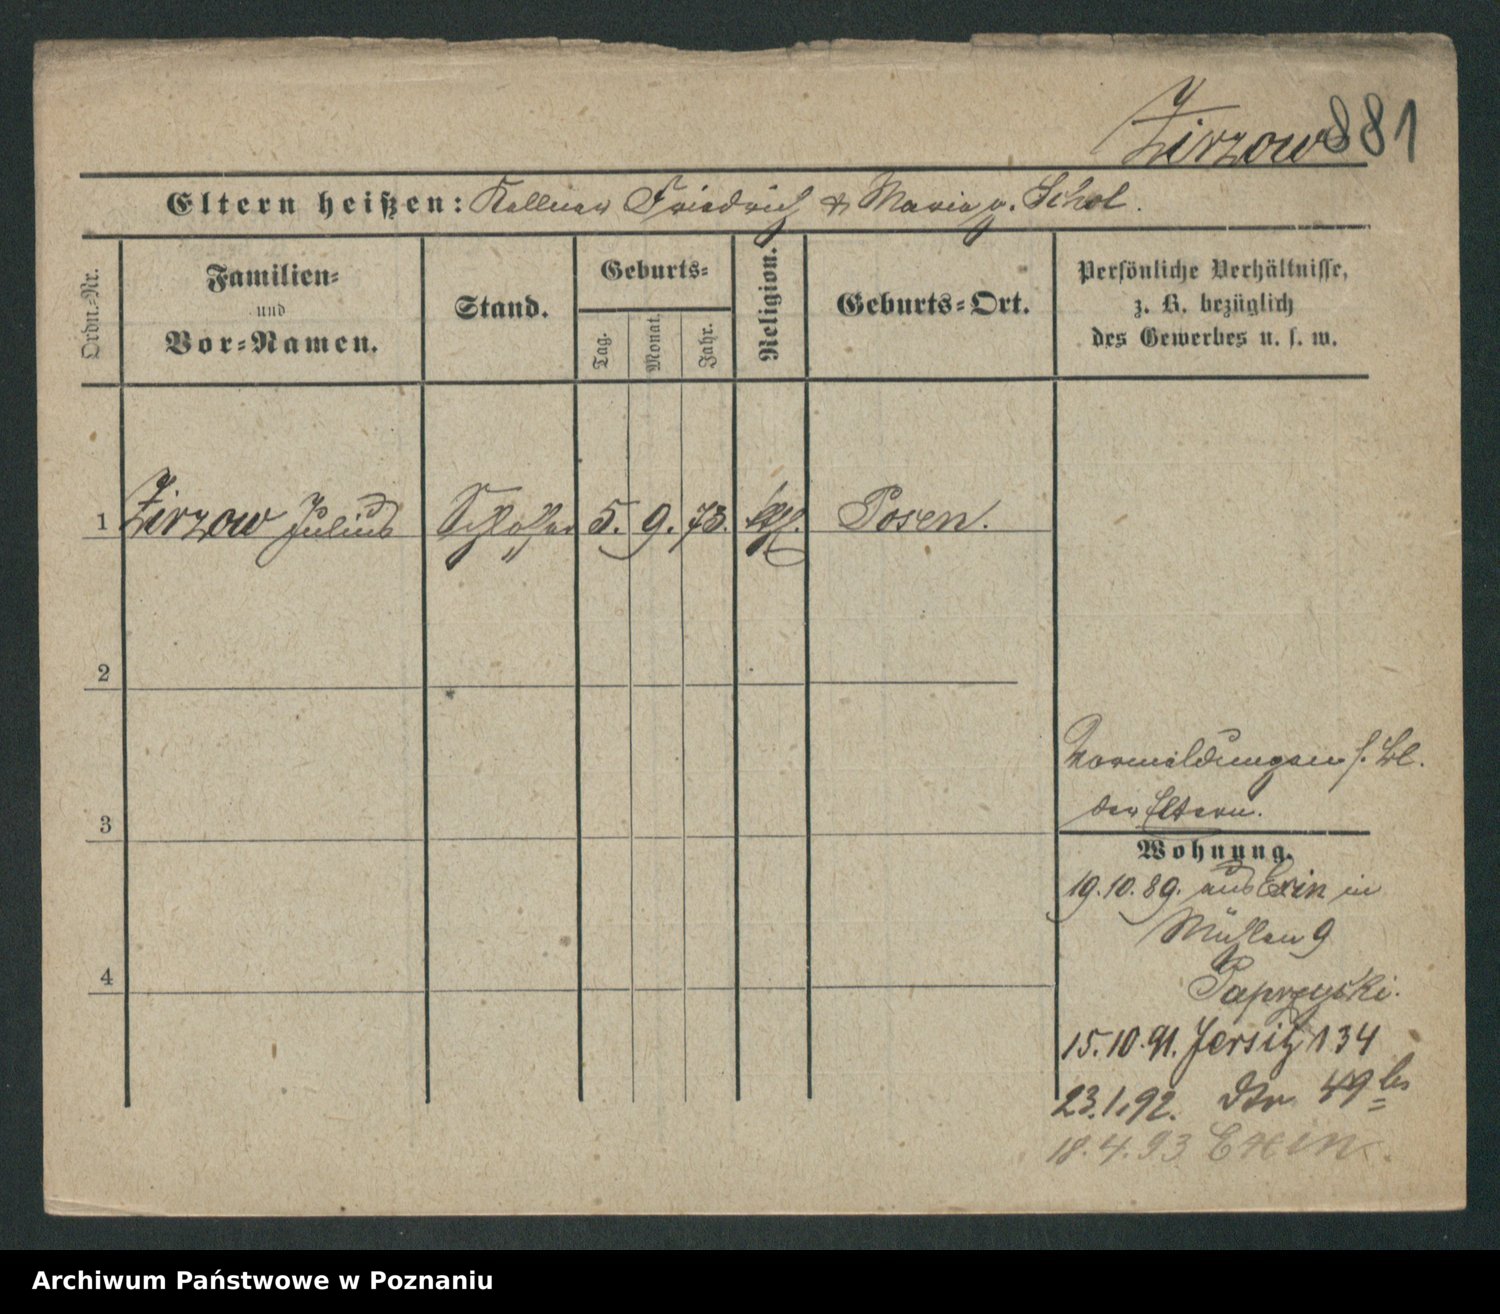 Zirzow 881
Eltern heißen: Kellner Friedrich & Maria g. Schol.
Ordn.-Nr.
Familien-
und
Vor-Namen.
Stand.
Geburts-
Tag.
Monat.
Jahr.
Religion.
Geburts-Ort.
Persönliche Verhältnisse,
z. B. bezüglich
des Gewerbes u. s. w.
1 Zirzow Julius Schlosser 5. 9. 73. Posen.
2
3
4
Vormeldungen s. Bl.
der Eltern.
Wohnung.
19.10.89. aus Exin in
Mühlen 9
Paprzycki.
15.10.91. Jersitz 134
23.1.92. Str 49
18.4.93 Exin.
Archiwum Państwowe w Poznaniu